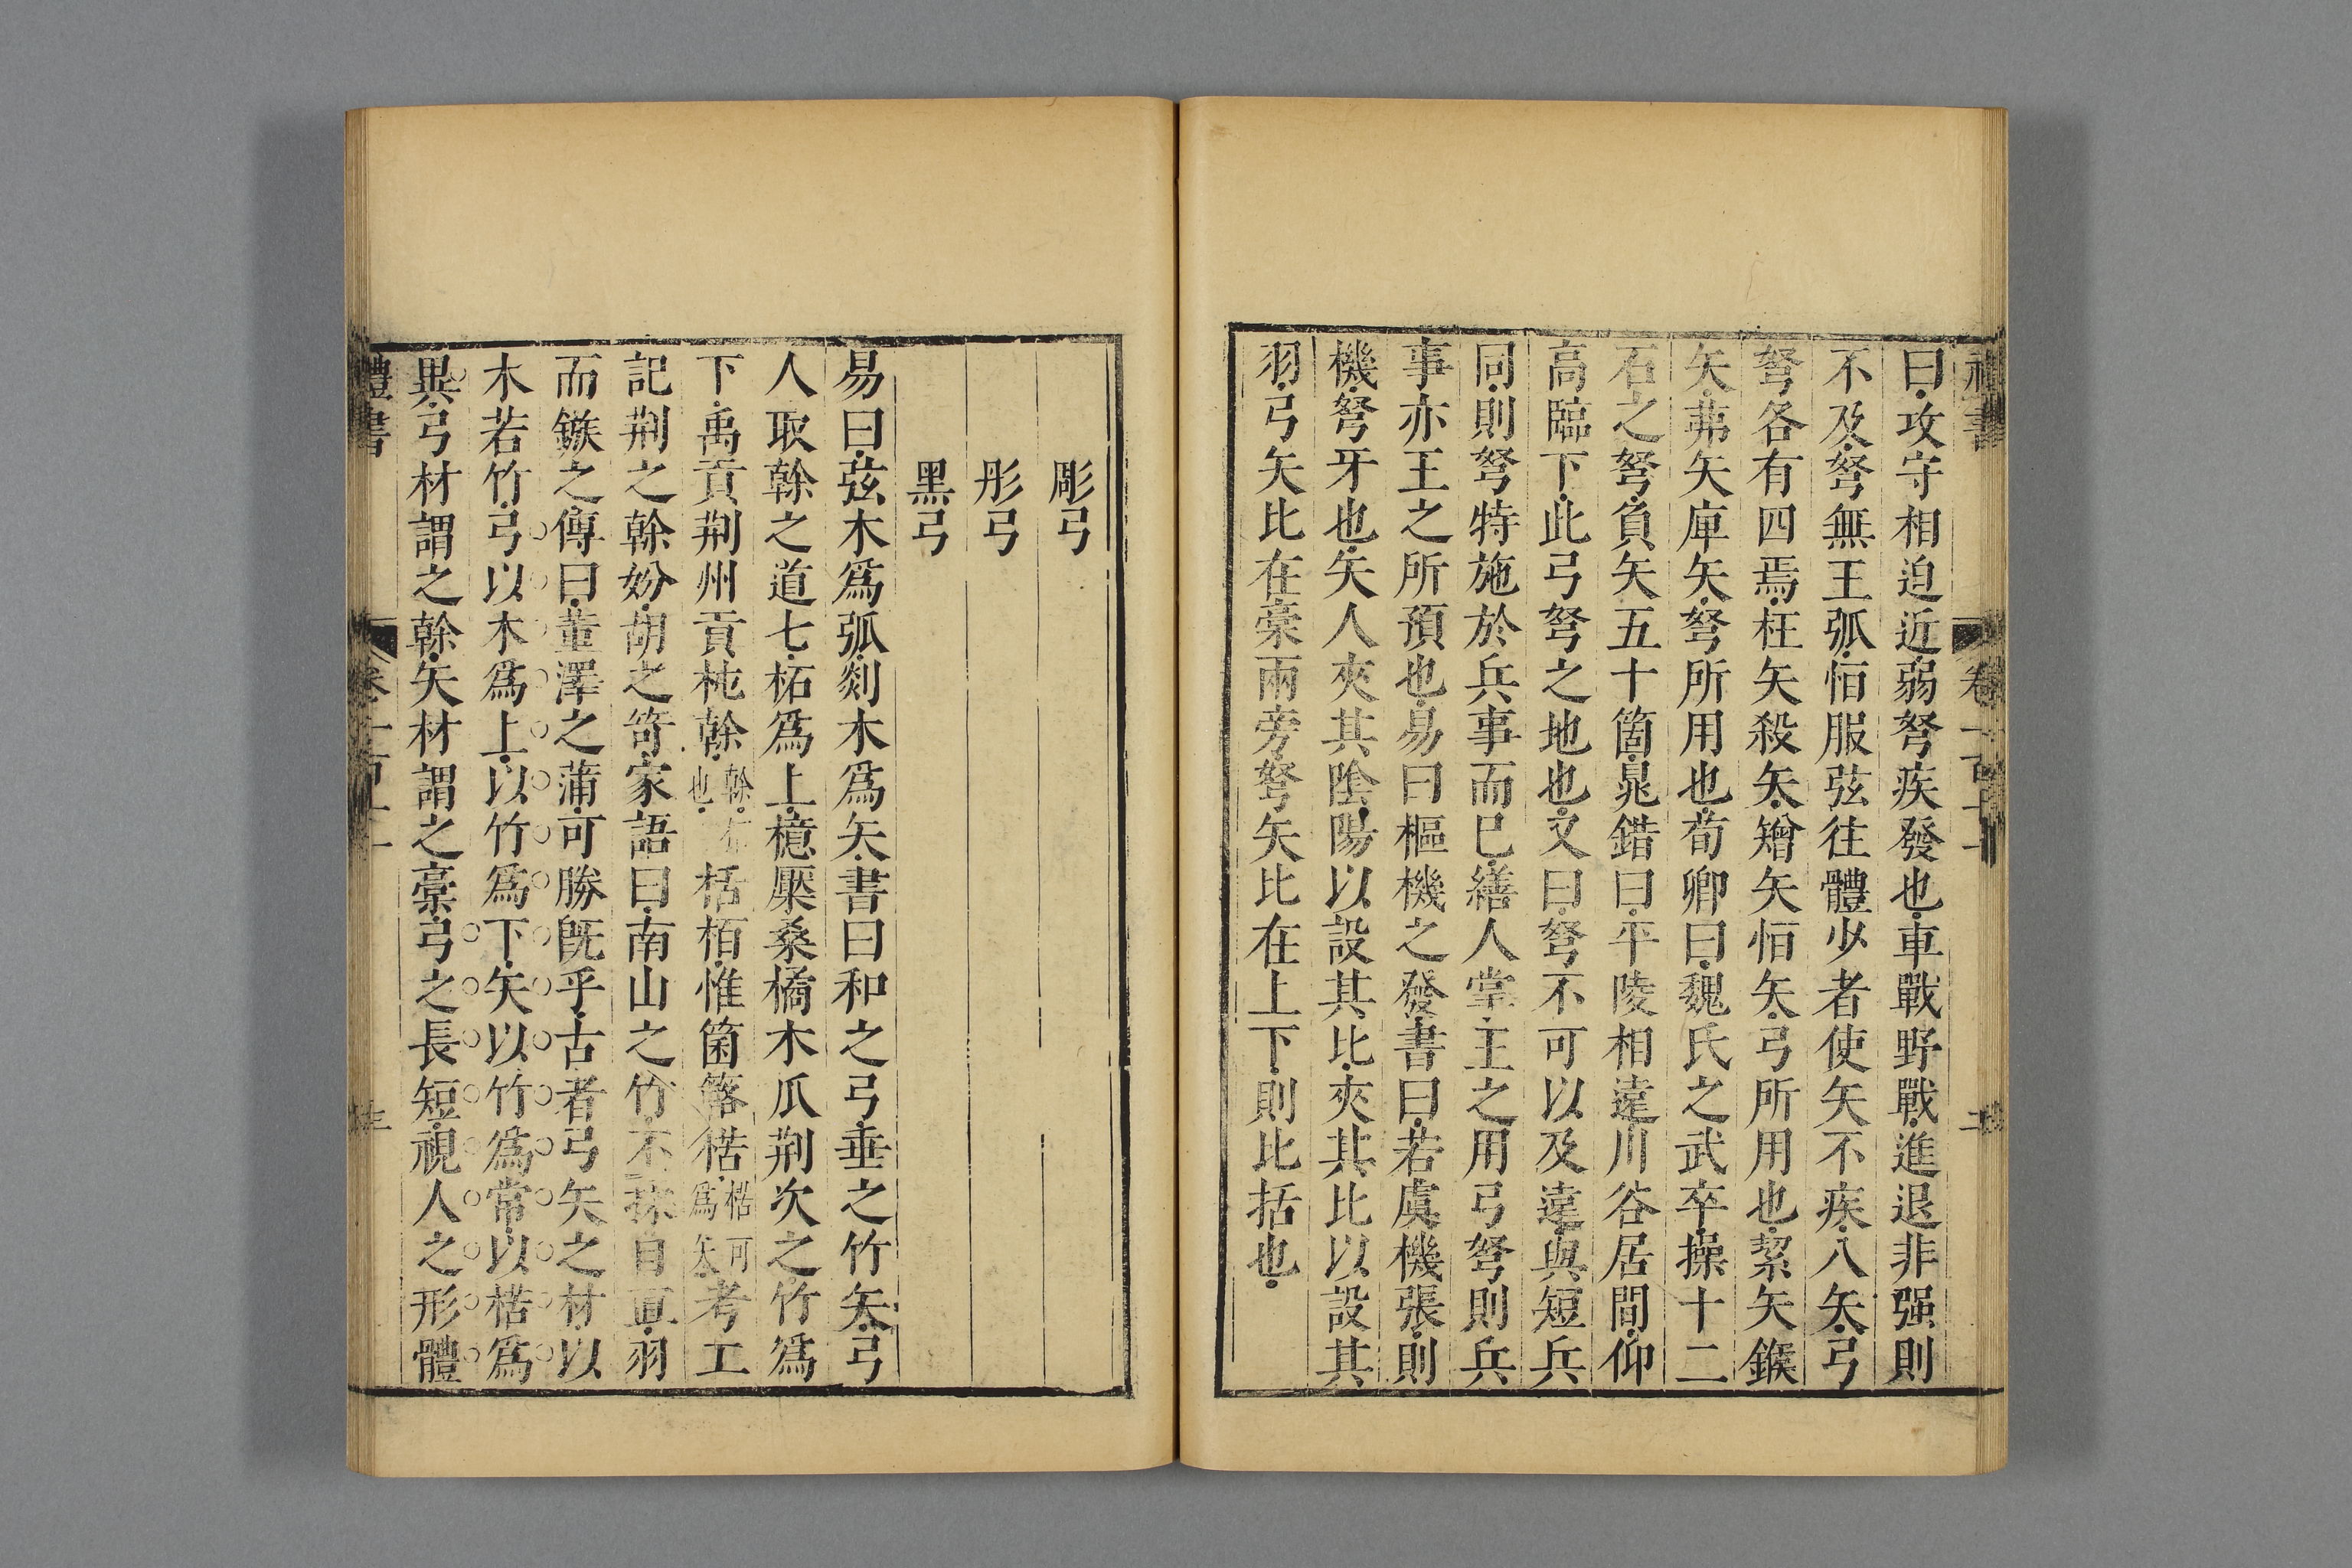 曰攻守相迫近弱弩疾發也車戰野戰進退非强則
不及弩無王弧恒服弦往體少者使矢不疾八矢弓
弩各有四焉枉矢殺矢矰矢恒矢弓所用也絜矢鍭
矢茀矢庳矢弩所用也荀卿曰魏氏之武卒操十二
石之弩負矢五十箇晁錯曰平陵相遠川谷居間仰
高臨下此弓弩之地也又曰弩不可以及遠與短兵
同則弩特施於兵事而已繕人掌王之用弓弩則兵
事亦王之所預也易曰樞機之發書曰若虞機張則
機弩牙也矢人夾其陰陽以設其比夾其比以設其
羽弓矢比在槀兩旁弩矢比在上下則比括也
彫弓
彤弓
黑弓
易曰弦木爲弧剡木爲矢書曰和之弓垂之竹矢弓
人取榦之道七柘爲上檍檿桑橘木爪荆次之竹爲
下禹貢荆州貢杶榦榦也栝栢惟箘簬楛楛可爲矢考工
記荆之榦妢胡之笴家語曰南山之竹不自直羽
而鏃之傳曰董澤之蒲可勝旣乎古者弓矢之材以
木若竹弓以木爲上以竹爲下矢以竹爲常以楛爲
異弓材謂之榦矢材謂之槀弓之長短視人之形體